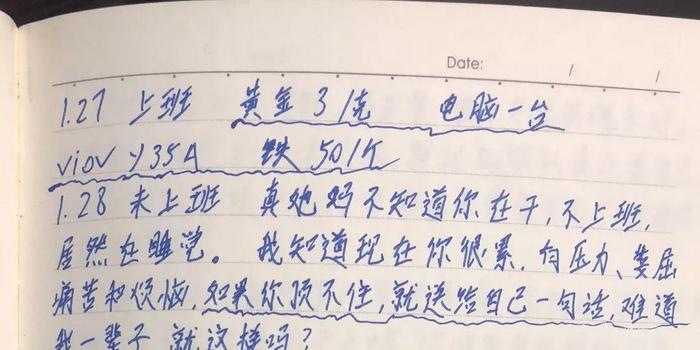 Date: / /
1.27 上班 黄金 31克 电脑一台
viov y35A 铁 501斤
1.28 未上班 真她妈不知道你在干,不上班,
居然在睡觉。我知道现在你很累,有压力、委屈
痛苦和烦恼,如果你顶不住,就送给自己一句话,难道
我一辈子就这样吗?